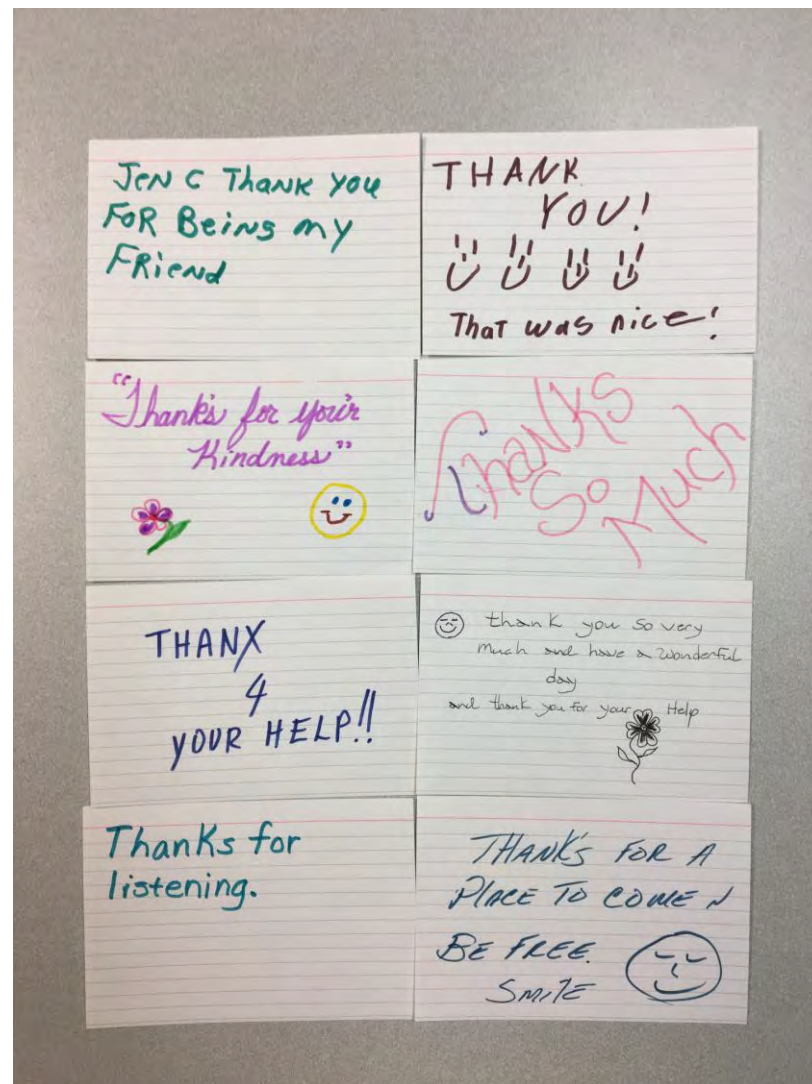 Jen C Thank you
FOR Being my
FRiend
THANK
YOU!
That was nice!
"Thank's for your'r
Kindness"
Thanks
So
Much
THANX
4
YOUR HELP!!
thank you so very
much and have a wonderful
day
and thank you for your Help
Thanks for
listening.
THANK'S FOR A
PLACE TO COME N
BE FREE.
SMILE